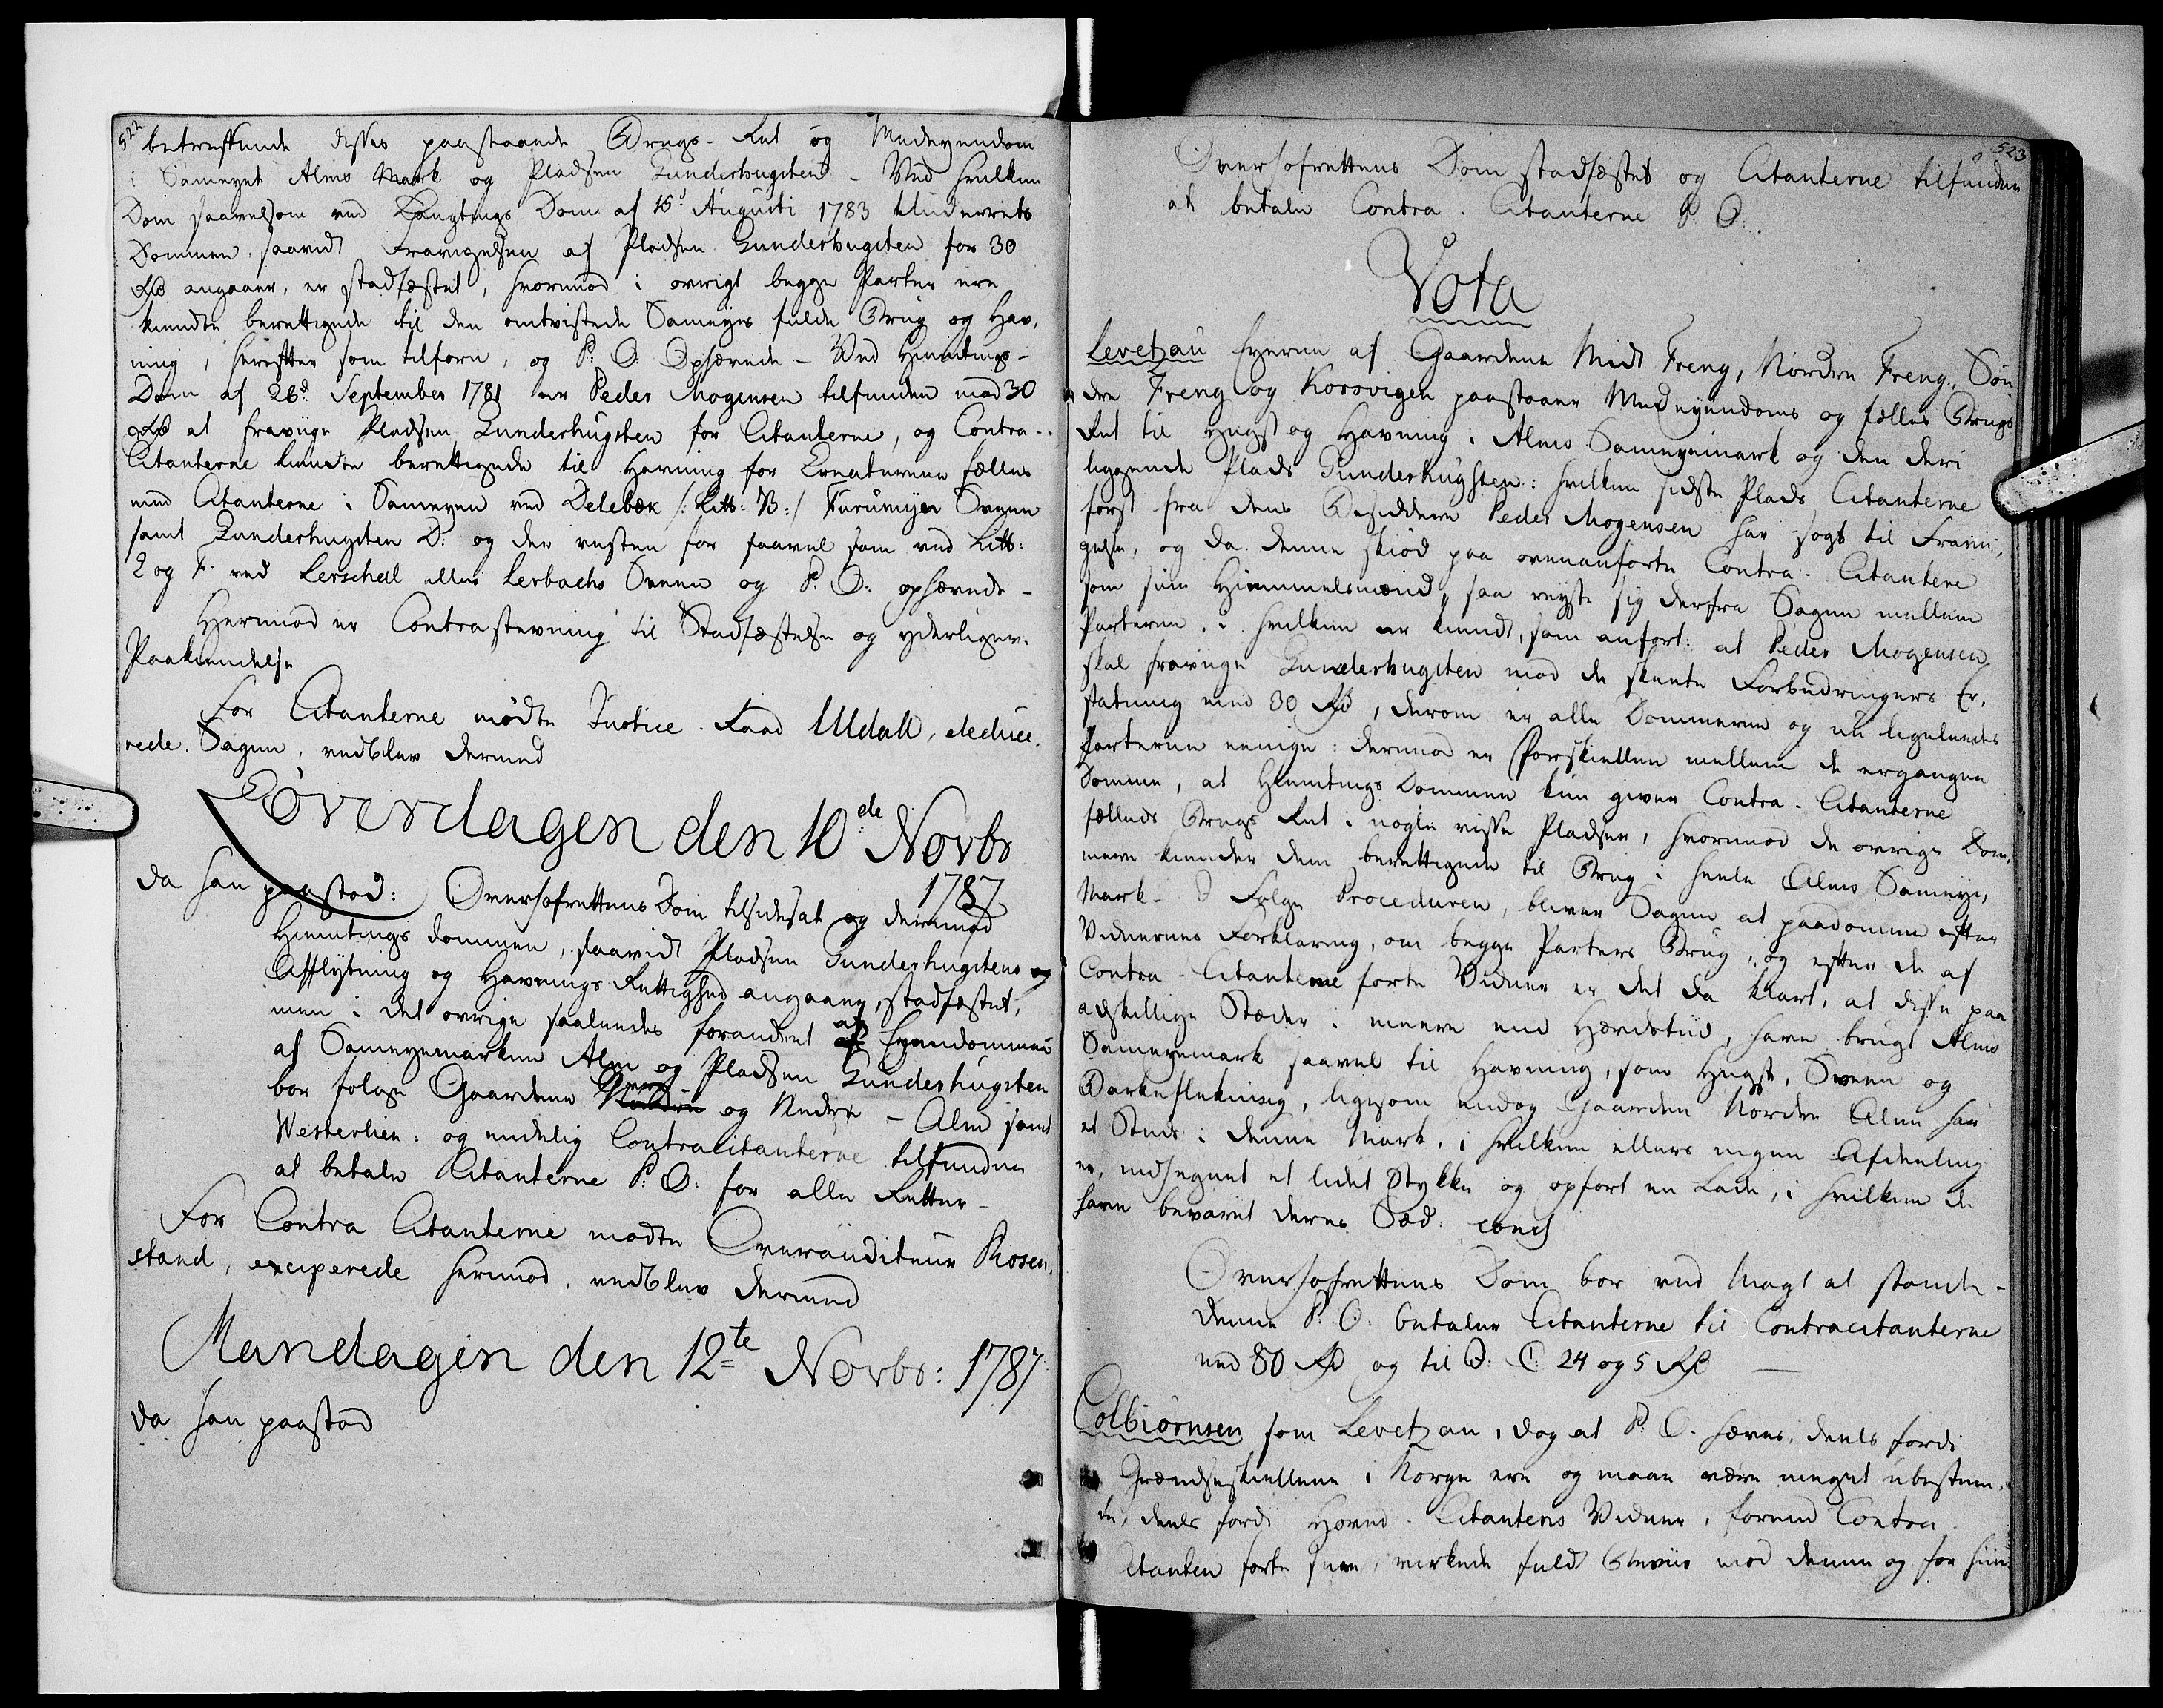 522
betreffende disses paastaaende Brugs-Ret og Medeyendom
i Sameyet Alms Mark og Pladsen Gunderhugsten - Ved hvilken
Dom saavelsom ved Laugtings Dom af 15d Augusti 1783 Underrets
Dommen saavidt Fravigelsen af Pladsen Gunderhugsten for 30
Rd angaaer, er stadfæstet, hvorimod i øvrigt begge Parter ere
kiendte berettigede til den omtvistede Sameyes fulde Brug og Hav-
ning, herefter som tilforn, og P: O: Ophævede - Ved Hiemtings-
Dom af 26d September 1781 er Peder Mogensen tilfunden mod 30
Rd at fravige Pladsen Gunderhugsten for Citanterne, og Contra-
Citanterne kiendte berettigede til Havning for Creaturene fælles
med Citanterne i Sameyen ved Delebæk /: Litt: B:/ Furumyr Sveen
samt Gunderhugsten D: og der vesten for saavel som ved Litt:
E og F. ved Lerschall eller Lerbachs Sveen og P: O: ophævede -
Hermod er Contrastevning til Stadfæstelse og yderligere
Paakiendelse
For Citanterne mødte Justice-Raad Uldall, deduce-
rede Sagen, vedblev dermed
Løverdagen den 10de Novbr
1787
da han paastod: Overhofrettens Dom tilsidesat og derimod
Hiemtings dommen, saavidt Pladsen Gunderhugstens
Afflytning og Havnings Rettighed angaaer, stadfæstet,
men i det øvrige saaledes forandret at Eyendommen
af Sameyemarken Alm og Pladsen Gunderhugsten
bør følge Gaardene Øvre og Nedre - Alm samt
Westerlien: og endelig Contracitanterne tilfunden
at betale Citanterne P: O: for alle Retter -
For Contra Citanterne mødte Overauditeur Rosen-
stand, exciperede hermod, vedblev dermed
Mandagen den 12te Novbr: 1787
da han paastod
523
Overhofrettens Dom stadfæstet og Citanterne tilfunden
at betale Contra-Citanterne P: O:
Vota
Levetzau Eyerne af Gaardene Midt Freng, Nordre Freng, Søn-
dre Freng og Korsvigen paastaaer Medeyendoms og fælles Brugs
Ret til Hugst og Havning i Alms Sameyemark og den deri
liggende Plads Gunderhugsten: hvilken sidste Plads Citanterne
først fra dens Besiddere Peder Mogensen har søgt til Fravi-
gelse, og da denne skiød paa ovenanførte Contra-Citantere
som sine Hiemmelsmænd, saa reyste sig derfra Sagen mellem
Parterne, i hvilken er kiendt, som anført: at Peder Mogensen
skal fravige Gunderhugsten mod de skeete Forbedringers Er-
statning med 30 Rd, derom er alle Dommerne og nu ligeledes
Parterne eenige: derimod er Forskiellen mellem de ergangne
Domme, at Hiemtings Dommen kun giver Contra-Citanterne
fælleds Brugs Ret i nogle visse Pladser, hvorimod de øvrige Dom-
mere kiender dem berettigede til Brug i heele Alms Sameye-
Mark - I Følge Proceduren, bliver Sagen at paadømme efter
Vidnernes Forklaring, om begge Parters Brug, og efter de af
Contra-Citanterne førte Vidner er det da klart, at disse paa
adskillige Stæder i meere end Hævdstid, have brugt Alms
Sameyemark saavel til Havning, som Hugst, Sveen og
Barkeflekning, ligesom endog Gaarden Nordre Alm har
et Sted i denne Mark, i hvilken ellers ingen Afdeeling
er, indhegnet et lidet Stykke og opført en Lade, i hvilken de
have bevaret deres Sæd. concl
Overhofrettens Dom bør ved Magt at stande -
denne P: O: betaler Citanterne til Contracitanterne
med 80 Rd og til J: C: 24 og 5 Rd
Colbiørnsen som Levetzau, dog at P: O: hæves, deels fordi
Grændseskiellene i Norge ere og maae være meget ubestem-
te, deels fordi Hoved-Citantens Vidner, førend Contra
Citanten førte sine, virkede fuldt Beviis mod denne og for hiin